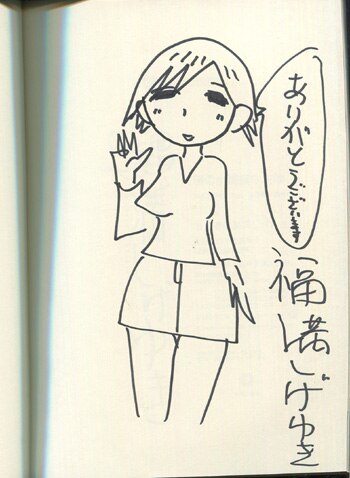 ありがとうございます
福満しげゆき